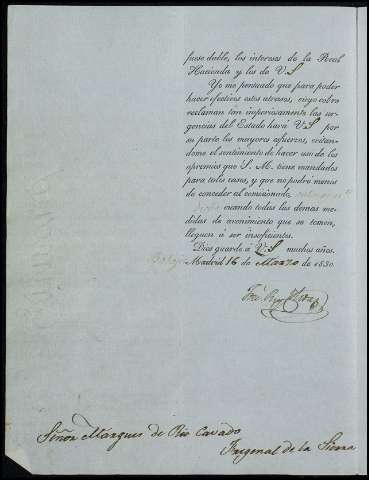 fuese dable, los intereses de la Real
Hacienda y los de V.S
Yo me persuado que para poder
hacer efectivos estos atrasos, cuyo cobro
reclaman tan imperiosamente las ur-
gencias del Estado hará V.S por
su parte los mayores esfuerzos, evitan-
dome el sentimiento de hacer uso de los
apremios que S. M. tiene mandados
para tales casos, y que no podré menos
de conceder al comisionado
cuando todas las demas me-
didas de avenimiento que se tomen,
lleguen á ser insuficientes.
Dios guarde á V.S muchos años.
Madrid 16 de Marzo de 1830.
Señor Marques de Rio Cavado
Fregenal de la Sierra